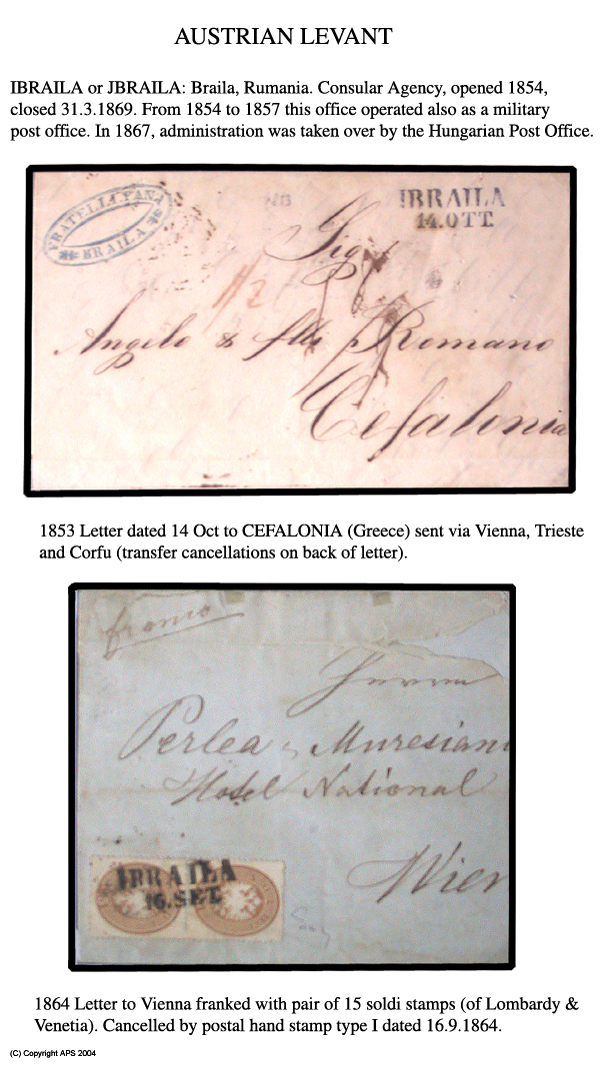 AUSTRIAN LEVANT
IBRAILA or JBRAILA: Braila, Rumania. Consular Agency, opened 1854,
closed 31.3.1869. From 1854 to 1857 this office operated also as a military
post office. In 1867, administration was taken over by the Hungarian Post Office.
FRATELLI PANA
BRAILA
IBRAILA
14.OTT.
Sig
Angelo & flli Romano
Cefalonia
1853 Letter dated 14 Oct to CEFALONIA (Greece) sent via Vienna, Trieste
and Corfu (transfer cancellations on back of letter).
franco
Herrn
Perlea & Muresianu
Hotel National
Wien
IBRAILA
16.SET.
1864 Letter to Vienna franked with pair of 15 soldi stamps (of Lombardy &
Venetia). Cancelled by postal hand stamp type I dated 16.9.1864.
(C) Copyright APS 2004